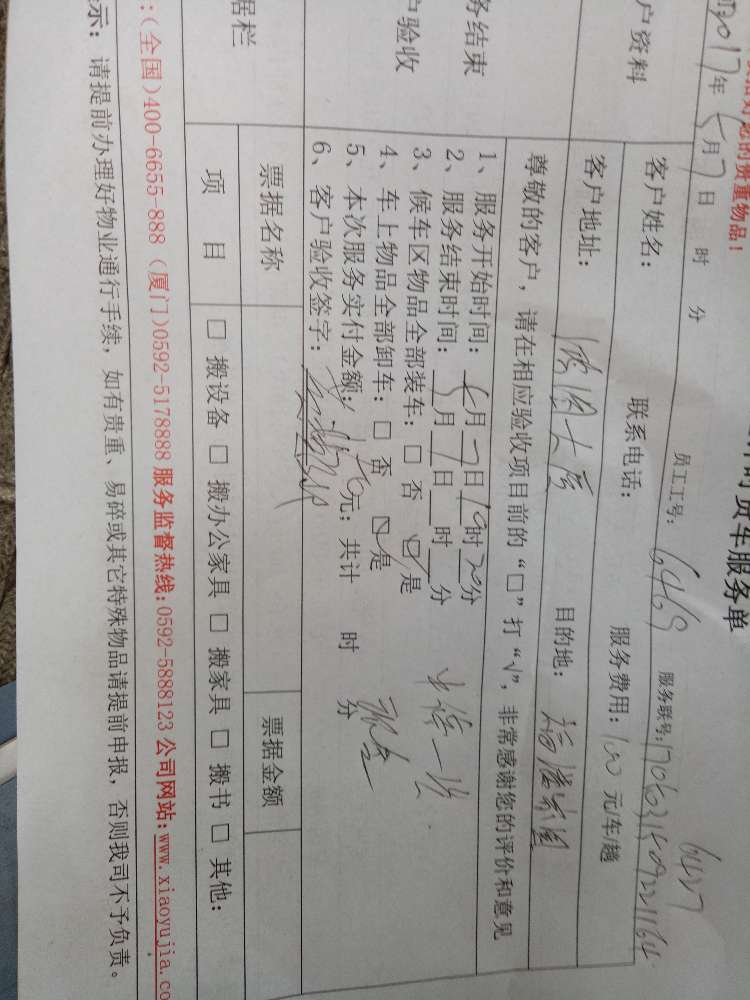 时货车服务单
贵重物品!
2017年 5月7日 时 分 员工工号: 6469 服务联号:170631409221164
6427
户资料
客户姓名: 联系电话: 服务费用:100 元/车/趟
客户地址: 大厦 目的地:
务结束
户验收
尊敬的客户,请在相应验收项目前的“□”打“√”,非常感谢您的评价和意见
1、服务开始时间: 5月7日10时20分
2、服务结束时间: 5月7日 时 分
3、候车区物品全部装车:□ 否 ☑是
4、车上物品全部卸车:□ 否 ☑是
5、本次服务实付金额: 元; 共计 时 分
6、客户验收签字:
据栏
票据名称 票据金额
项 目 □ 搬设备 □ 搬办公家具 □ 搬家具 □ 搬书 □ 其他:
:(全国)400-6655-888 (厦门)0592-5178888 服务监督热线:0592-5888123 公司网站:www.xiaoyujia.co
示: 请提前办理好物业通行手续,如有贵重、易碎或其它特殊物品请提前申报,否则我司不予负责。